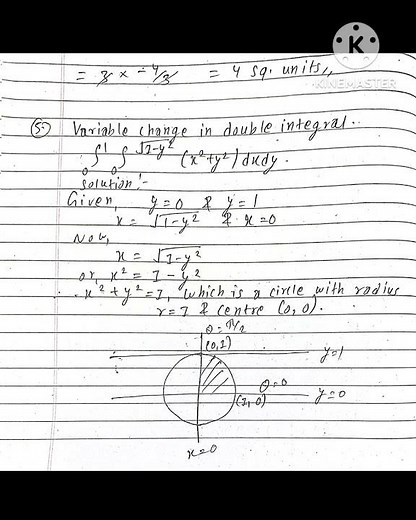 K
KINEMASTER
= 3 × -4/3 = 4 sq. units,,
(5) Variable change in double integral.
∫₀¹ ∫₀^√1-y² (x²+y²) dxdy.
solution:-
Given, y=0 & y=1
x = √1-y² & x=0
Now,
x = √1-y²
or, x² = 1-y²
∴ x²+y²=1, which is a circle with radius
r=1 & centre (0,0).
θ=π/2
(0,1)
y=1
θ=0
(1,0)
y=0
x=0